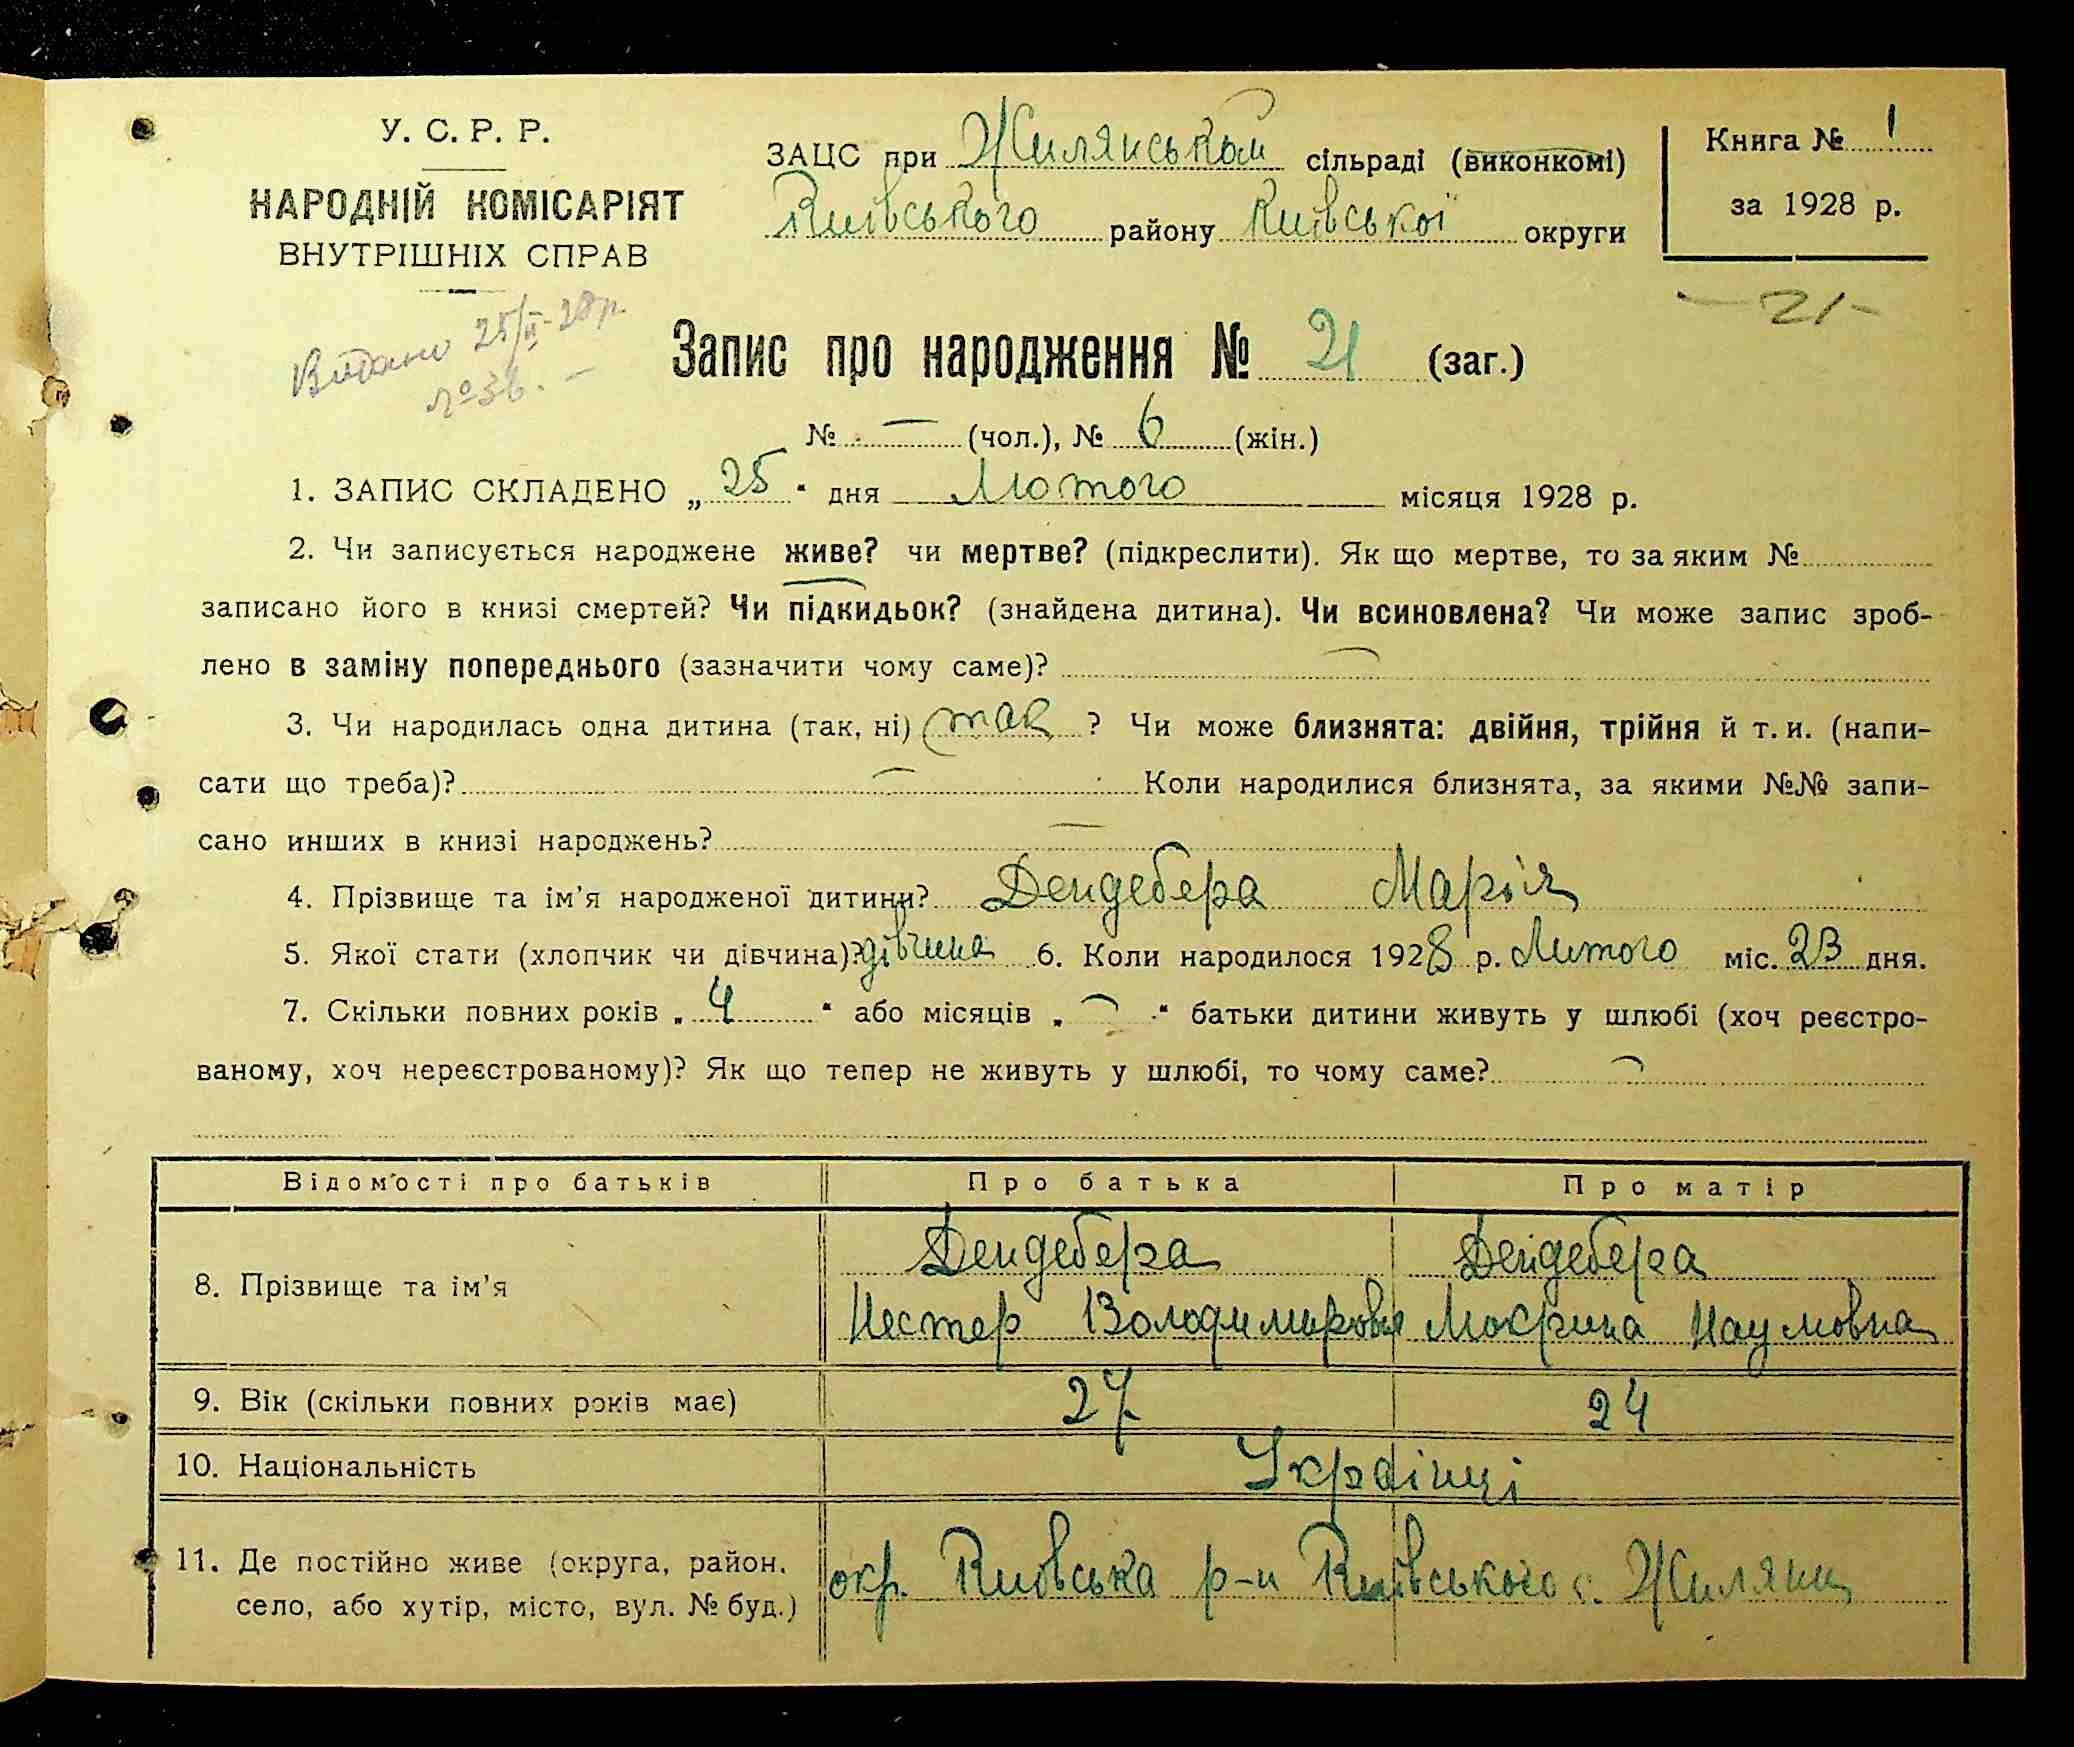 У. С. Р. Р.
НАРОДНІЙ КОМІСАРІЯТ
ВНУТРІШНІХ СПРАВ
ЗАЦС при Жилянськом сільраді (виконкомі)
Київського району Київської округи
Книга № 1
за 1928 р.
— 21 —
Видано 25/II-28р.
№ 36. —
Запис про народження № 21 (заг.)
№ — (чол.), № 6 (жін.)
1. ЗАПИС СКЛАДЕНО „ 25 “ дня Лютого місяця 1928 р.
2. Чи записується народжене живе? чи мертве? (підкреслити). Як що мертве, то за яким №
записано його в книзі смертей? Чи підкидьок? (знайдена дитина). Чи всиновлена? Чи може запис зроб-
лено в заміну попереднього (зазначити чому саме)? —
3. Чи народилась одна дитина (так, ні) так ? Чи може близнята: двійня, трійня й т. и. (напи-
сати що треба)? — Коли народилися близнята, за якими №№ запи-
сано инших в книзі народжень? —
4. Прізвище та ім'я народженої дитини? Дендебера Марія
5. Якої стати (хлопчик чи дівчина)? дівчина 6. Коли народилося 1928 р. Лютого міс. 23 дня.
7. Скільки повних років „ 4 “ або місяців „ — “ батьки дитини живуть у шлюбі (хоч реєстро-
ваному, хоч нереєстрованому)? Як що тепер не живуть у шлюбі, то чому саме? —
Відомості про батьків Про батька Про матір
8. Прізвище та ім'я Дендебера Дендебера
Нестер Володимирови Мокрина Наумовна
9. Вік (скільки повних років має) 27 24
10. Національність Українці
11. Де постійно живе (округа, район, село, або хутір, місто, вул. № буд.) окр. Київська р-н Київського с. Жиляни